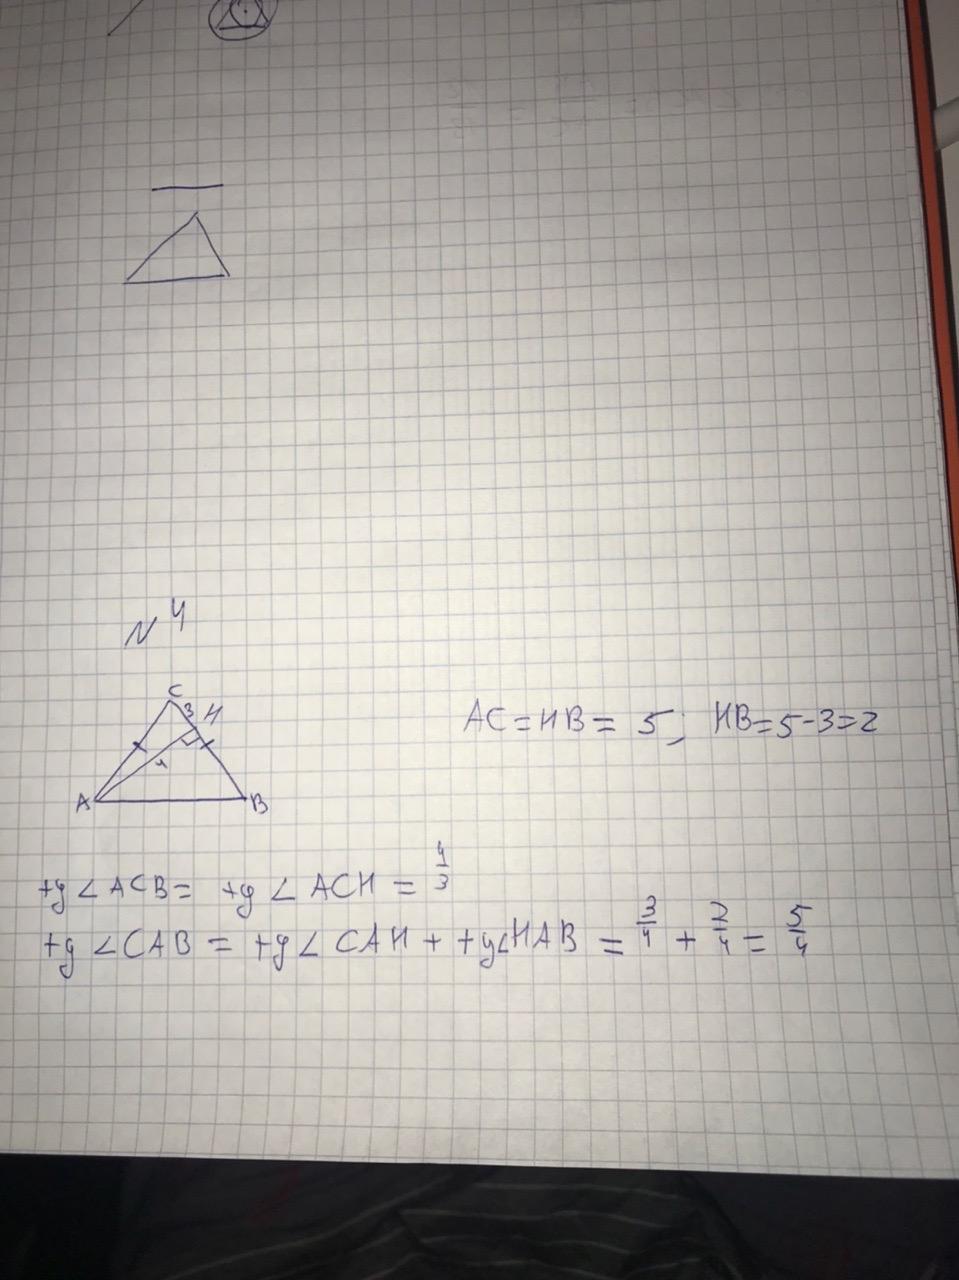 N 4
C
3 H
4
A B
AC = HB = 5; HB = 5 - 3 = 2
tg ∠ ACB = tg ∠ ACH = 4/3
tg ∠ CAB = tg ∠ CAH + tg ∠ HAB = 3/4 + 2/4 = 5/4